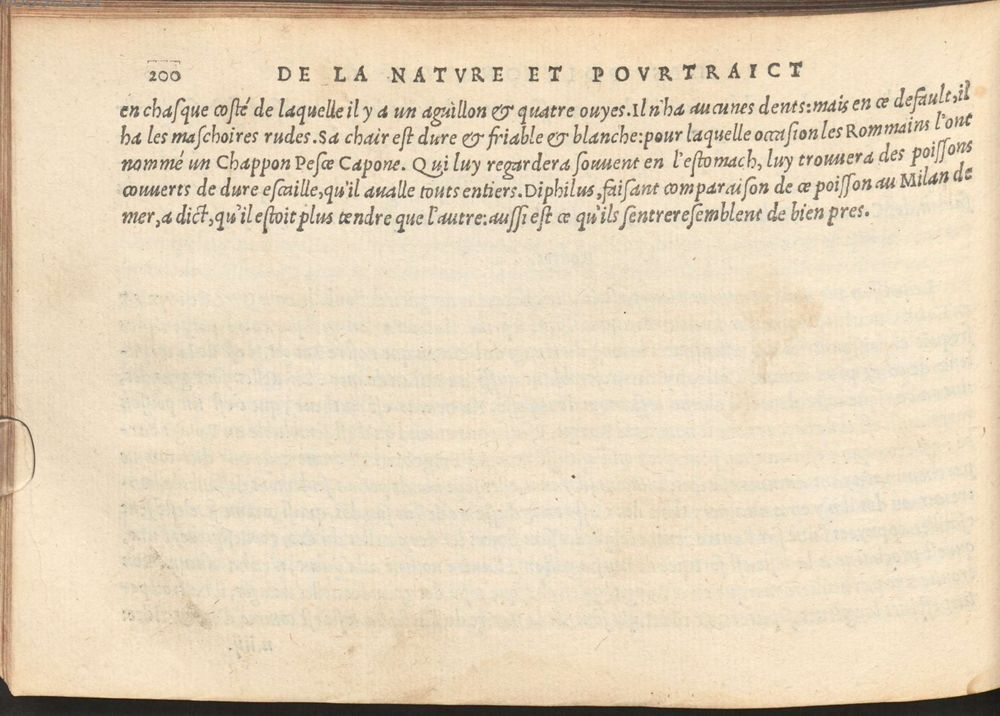 200 DE LA NATVRE ET POVRTRAICT
en chasque costé de laquelle il y a un aguillon & quatre ouyes. Il n'ha aucunes dents: mais en ce default, il
ha les maschoires rudes. Sa chair est dure & friable & blanche: pour laquelle occasion les Rommains l'ont
nommé un Chappon Pesce Capone. Qui luy regardera souvent en l'estomach, luy trouvera des poissons
couverts de dure escaille, qu'il avalle touts entiers. Diphilus, faisant comparaison de ce poisson au Milan de
mer, a dict, qu'il estoit plus tendre que l'autre: aussi est ce qu'ils sentreresemblent de bien pres.